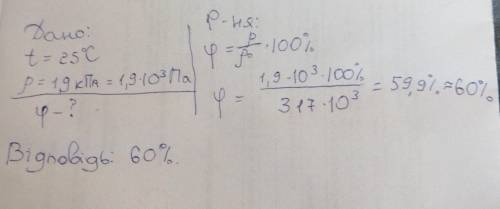 Дано:
t = 25°C
p = 1,9 кПа = 1,9·10³ Па
φ - ?
Р-ня:
φ = p/p₀ · 100%
φ = 1,9·10³·100% / 317·10³ = 59,9% ≈ 60%
Відповідь: 60%.